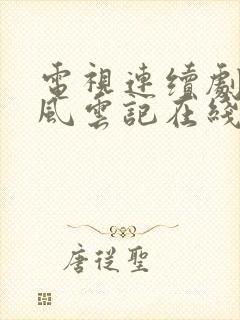 電視連續劇
風雲記在綫
唐從聖